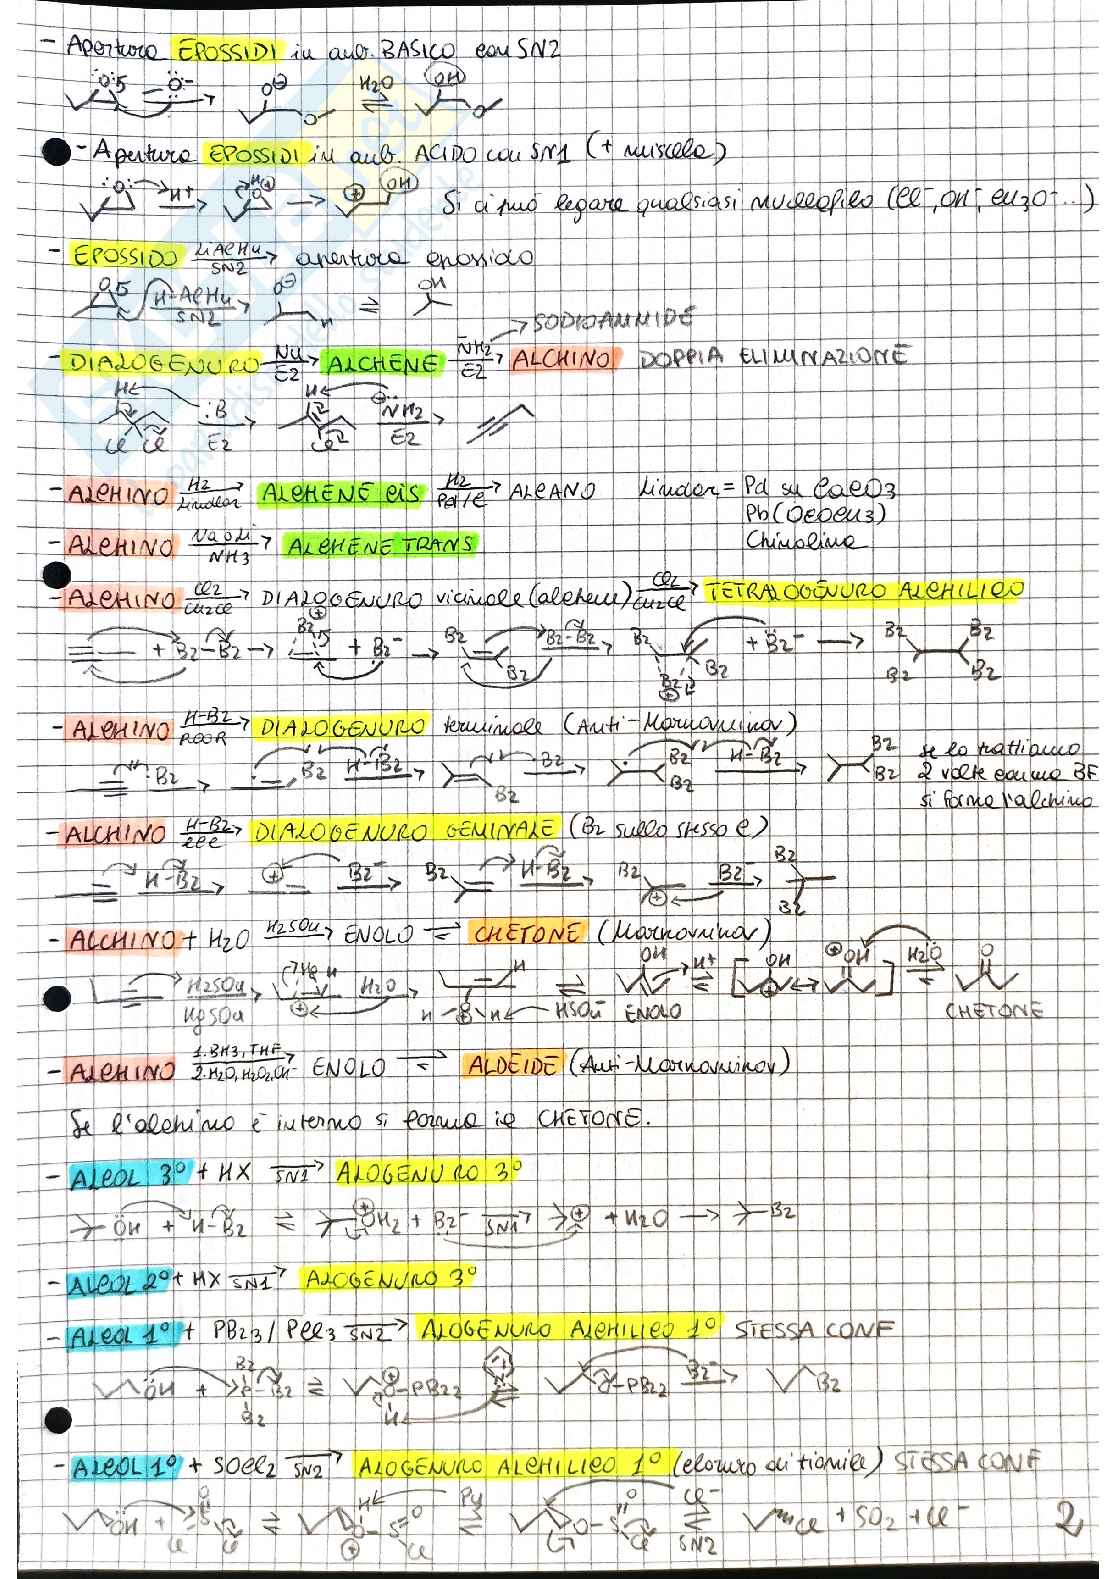 - Apertura EPOSSIDI in amb. BASICO con SN2
H2O
OH
- Apertura EPOSSIDI in amb. ACIDO con SN1 (+ miscela)
H+
OH
Si ci può legare qualsiasi nucleofilo (Cl-, OH-, CH3O-...)
- EPOSSIDO LiAlH4 SN2 → apertura epossido
H-AlH4
SN2
OH
→ SODIOAMMIDE
- DIALOGENURO Nu E2 → ALCHENE NH2 E2 → ALCHINO DOPPIA ELIMINAZIONE
H :B E2 H NH2 E2
Cl Cl Cl
- ALCHINO H2 Lindlar → ALCHENE CIS H2 Pd/C → ALCANO Lindlar = Pd su CaCO3
Pb(OCOCH3)
Chinolina
- ALCHINO Na o Li NH3 → ALCHENE TRANS
- ALCHINO Cl2 CH2Cl → DIALOGENURO vicinale (alchene) Cl2 CH2Cl → TETRALOGENURO ALCHILICO
+ Br-Br → Br + Br- → Br Br Br-Br → Br Br Br + Br- → Br Br Br Br
- ALCHINO H-Br ROOR → DIALOGENURO terminale (Anti-Markovnikov)
·Br → Br H-Br → Br ·Br → Br Br H-Br → Br Br
se lo trattiamo
2 volte con una BF
si forma l'alchino
- ALCHINO H-Br → DIALOGENURO GEMINALE (Br sullo stesso C)
H-Br → Br- → Br H-Br → Br Br- → Br Br
- ALCHINO + H2O H2SO4 → ENOLO ⇌ CHETONE (Markovnikov)
H2SO4 HgSO4 → Hg H2O → H ⇌ OH H+ ⇌ [OH ↔ OH] H2O ⇌ O
HSO4- ENOLO CHETONE
- ALCHINO 1. BH3, THF 2. H2O, H2O2, OH- → ENOLO ⇌ ALDEIDE (Anti-Markovnikov)
Se l'alchino è interno si forma il CHETONE.
- ALCOL 3° + HX SN1 → ALOGENURO 3°
OH + H-Br ⇌ OH2 + Br- SN1 → + H2O → Br
- ALCOL 2° + HX SN1 → ALOGENURO 3°
- ALCOL 1° + PBr3 / PCl3 SN2 → ALOGENURO ALCHILICO 1° STESSA CONF
OH + Br P-Br Br ⇌ O-PBr2 H ⇌ O-PBr2 Br- → Br
- ALCOL 1° + SOCl2 SN2 → ALOGENURO ALCHILICO 1° (cloruro di tionile) STESSA CONF
OH + Cl S O Cl ⇌ H O-S=O Cl Py ⇌ O-S O Cl Cl- SN2 ⇌ Cl + SO2 + Cl-
2